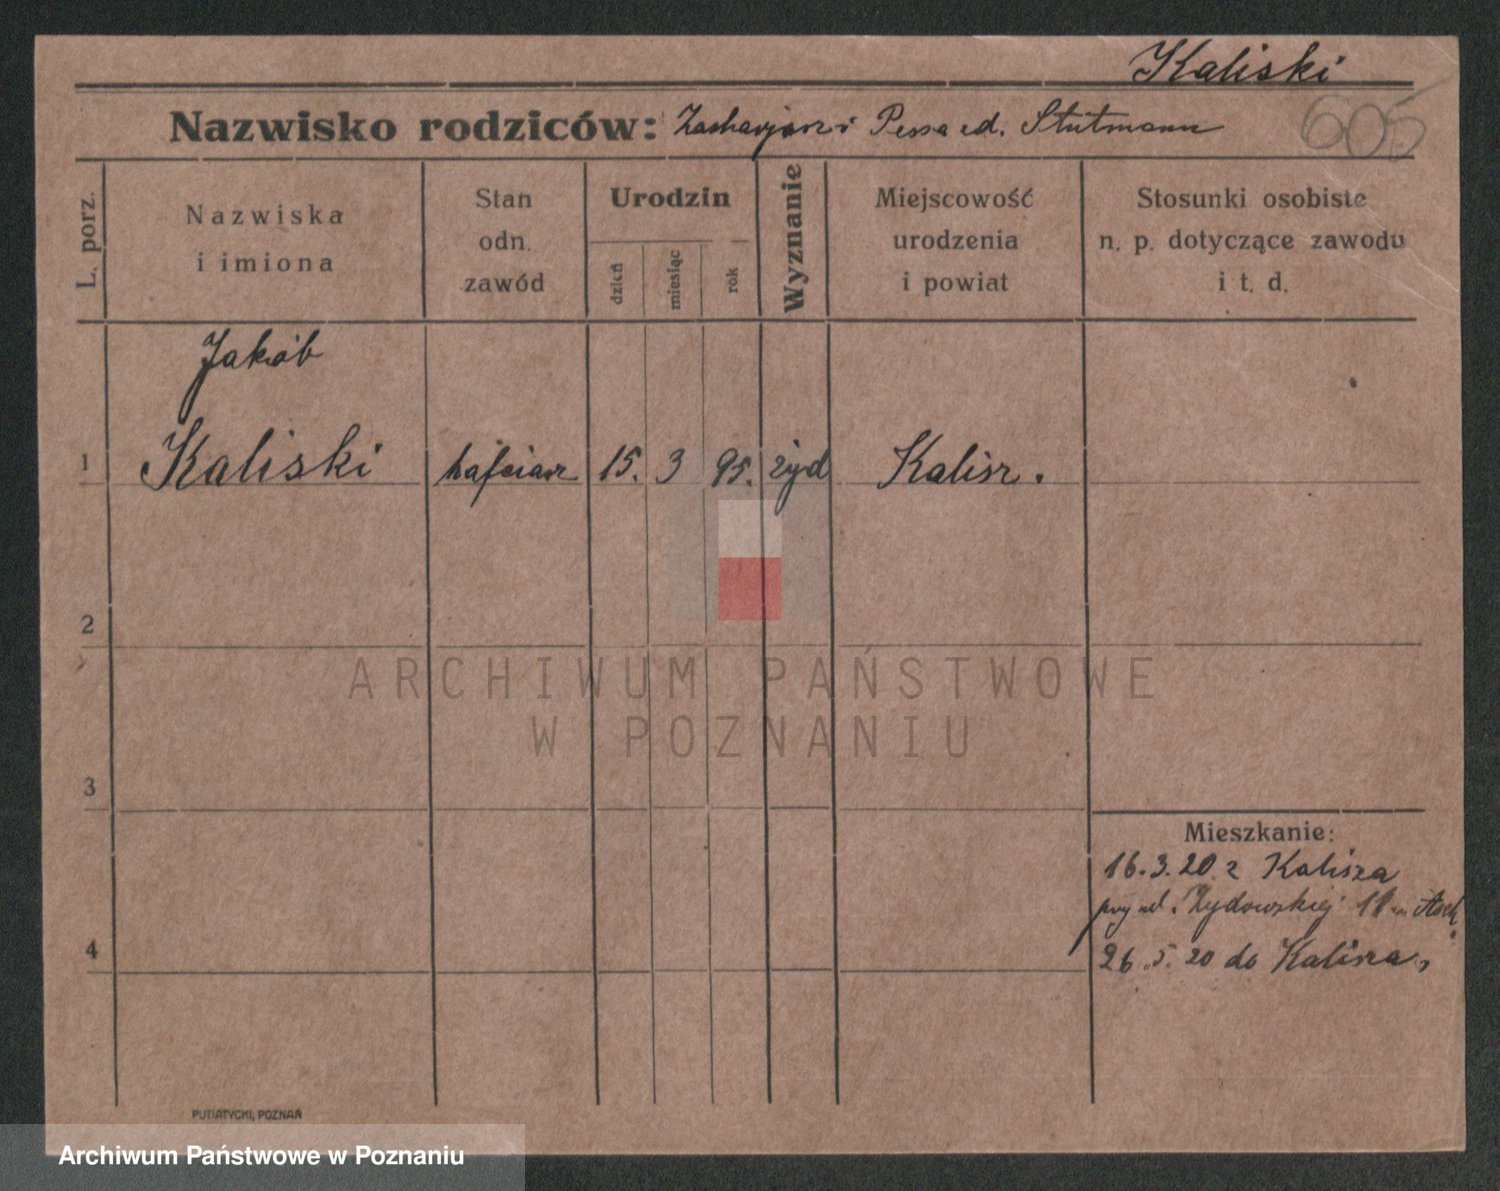 Kaliski
605
Nazwisko rodziców: Zacharjasz i Pessa zd. Stutmann
L. porz.
Nazwiska
i imiona
Stan
odn.
zawód
Urodzin
dzień
miesiąc
rok
Wyznanie
Miejscowość
urodzenia
i powiat
Stosunki osobiste
n. p. dotyczące zawodu
i t. d.
Jakób
1 Kaliski hafciarz 15. 3 95. żyd Kalisz.
2
ARCHIWUM PAŃSTWOWE
W POZNANIU
3
Mieszkanie:
16.3.20 z Kalisza
przy ul. Żydowskiej 11
4
26.5.20 do Kalisza,
PUTIATYCKI, POZNAŃ
Archiwum Państwowe w Poznaniu